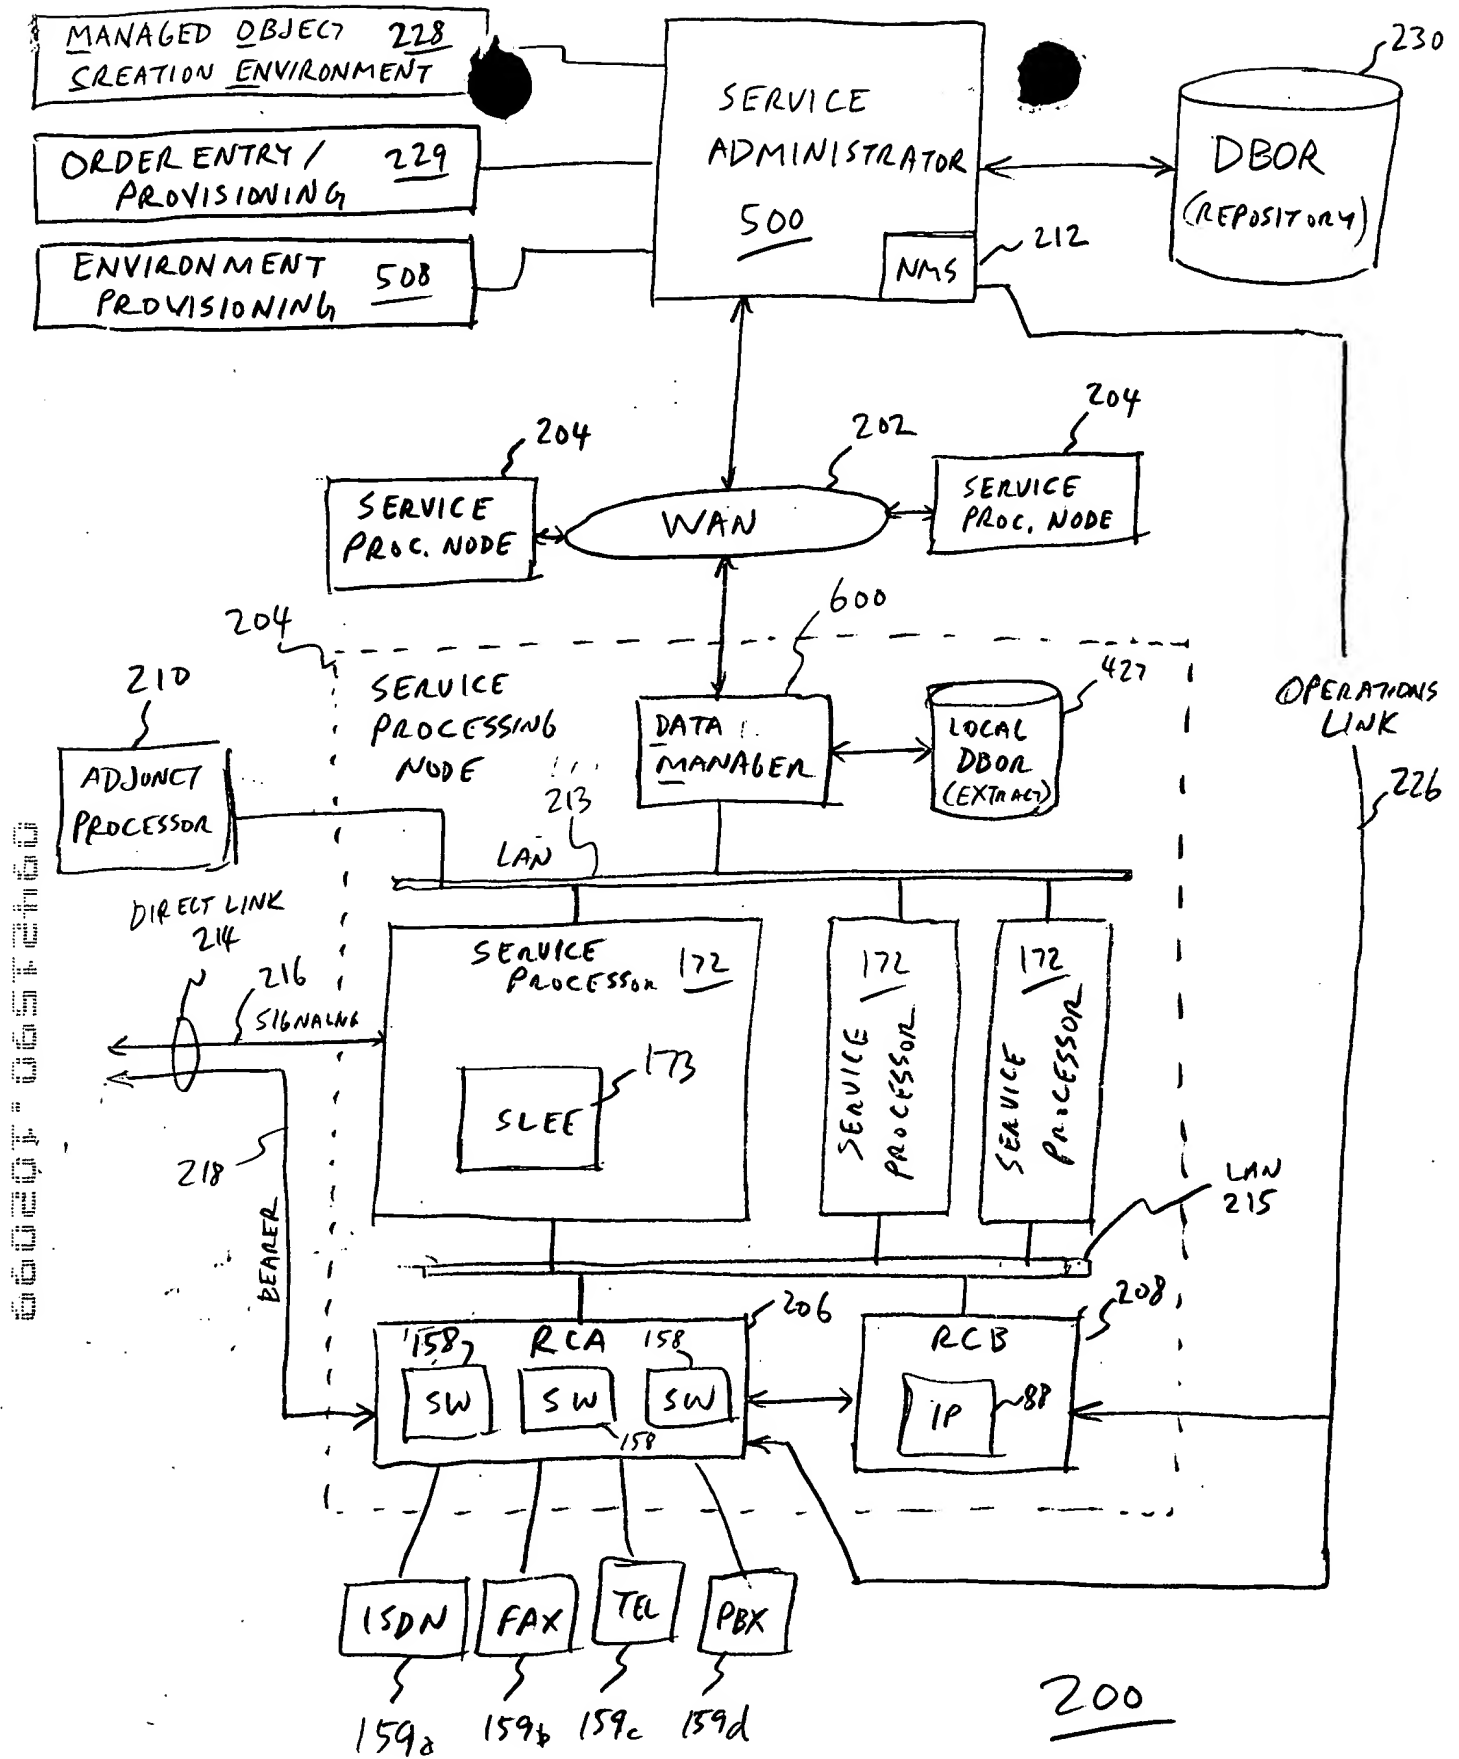 MANAGED OBJECT 228
CREATION ENVIRONMENT
ORDER ENTRY / 229
PROVISIONING
ENVIRONMENT 508
PROVISIONING
SERVICE
ADMINISTRATOR
500
NMS
212
230
DBOR
(REPOSITORY)
204
SERVICE
PROC. NODE
202
WAN
204
SERVICE
PROC. NODE
600
204
210
ADJUNCT
PROCESSOR
SERVICE
PROCESSING
NODE
DATA
MANAGER
427
LOCAL
DBOR
(EXTRACT)
OPERATIONS
LINK
226
213
LAN
DIRECT LINK
214
216
SIGNALNG
SERVICE
PROCESSOR 172
173
SLEE
172
SERVICE
PROCESSOR
172
SERVICE
PROCESSOR
218
BEARER
LAN
215
206
208
158 RCA 158
SW SW SW
158
RCB
IP 88
ISDN FAX TEL PBX
159a 159b 159c 159d
200